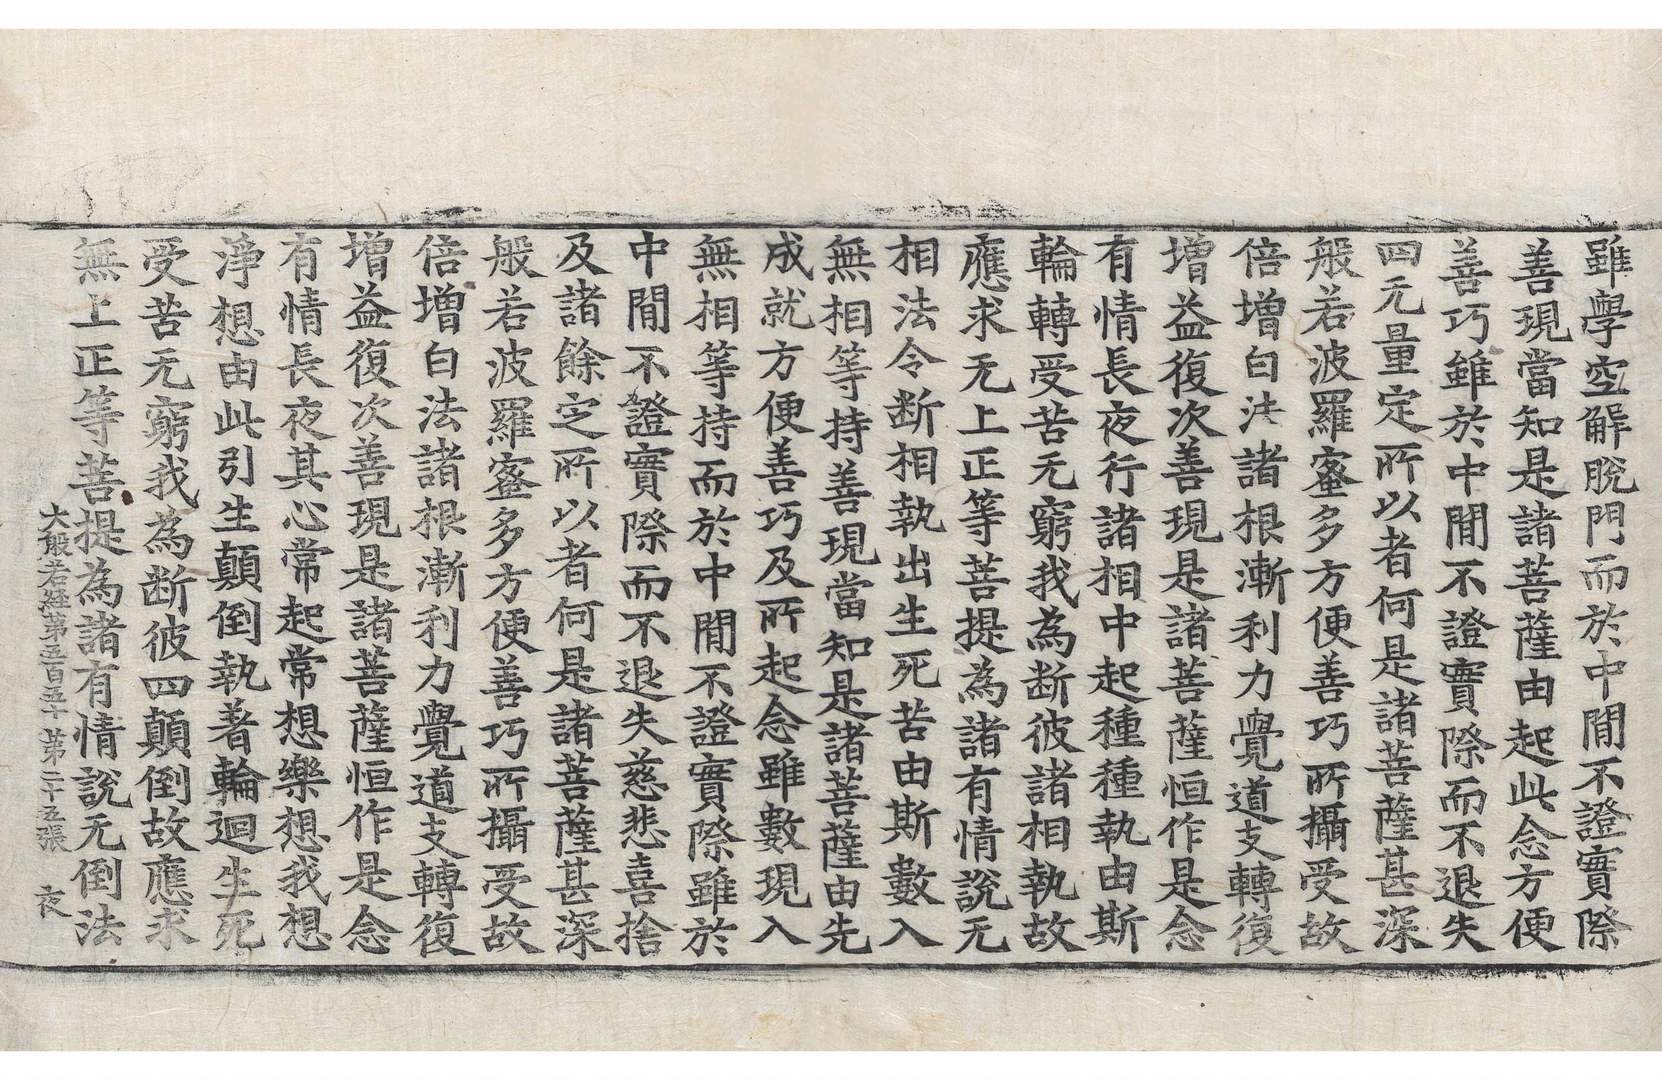 雖學空解脫門而於中閒不證實際
善現當知是諸菩薩由起此念方便
善巧雖於中閒不證實際而不退失
四无量定所以者何是諸菩薩甚深
般若波羅蜜多方便善巧所攝受故
倍增白法諸根漸利力覺道支轉復
增益復次善現是諸菩薩恒作是念
有情長夜行諸相中起種種執由斯
輪轉受苦无窮我為断彼諸相執故
應求无上正等菩提為諸有情說无
相法令断相執出生死苦由斯數入
無相等持善現當知是諸菩薩由先
成就方便善巧及所起念雖數現入
無相等持而於中閒不證實際雖於
中閒不證實際而不退失慈悲喜捨
及諸餘定所以者何是諸菩薩甚深
般若波羅蜜多方便善巧所攝受故
倍增白法諸根漸利力覺道支轉復
增益復次善現是諸菩薩恒作是念
有情長夜其心常起常想樂想我想
淨想由此引生顛倒執著輪迴生死
受苦无窮我為断彼四顛倒故應求
無上正等菩提為諸有情說无倒法
大般若經第五百五十 第二十五張 夜